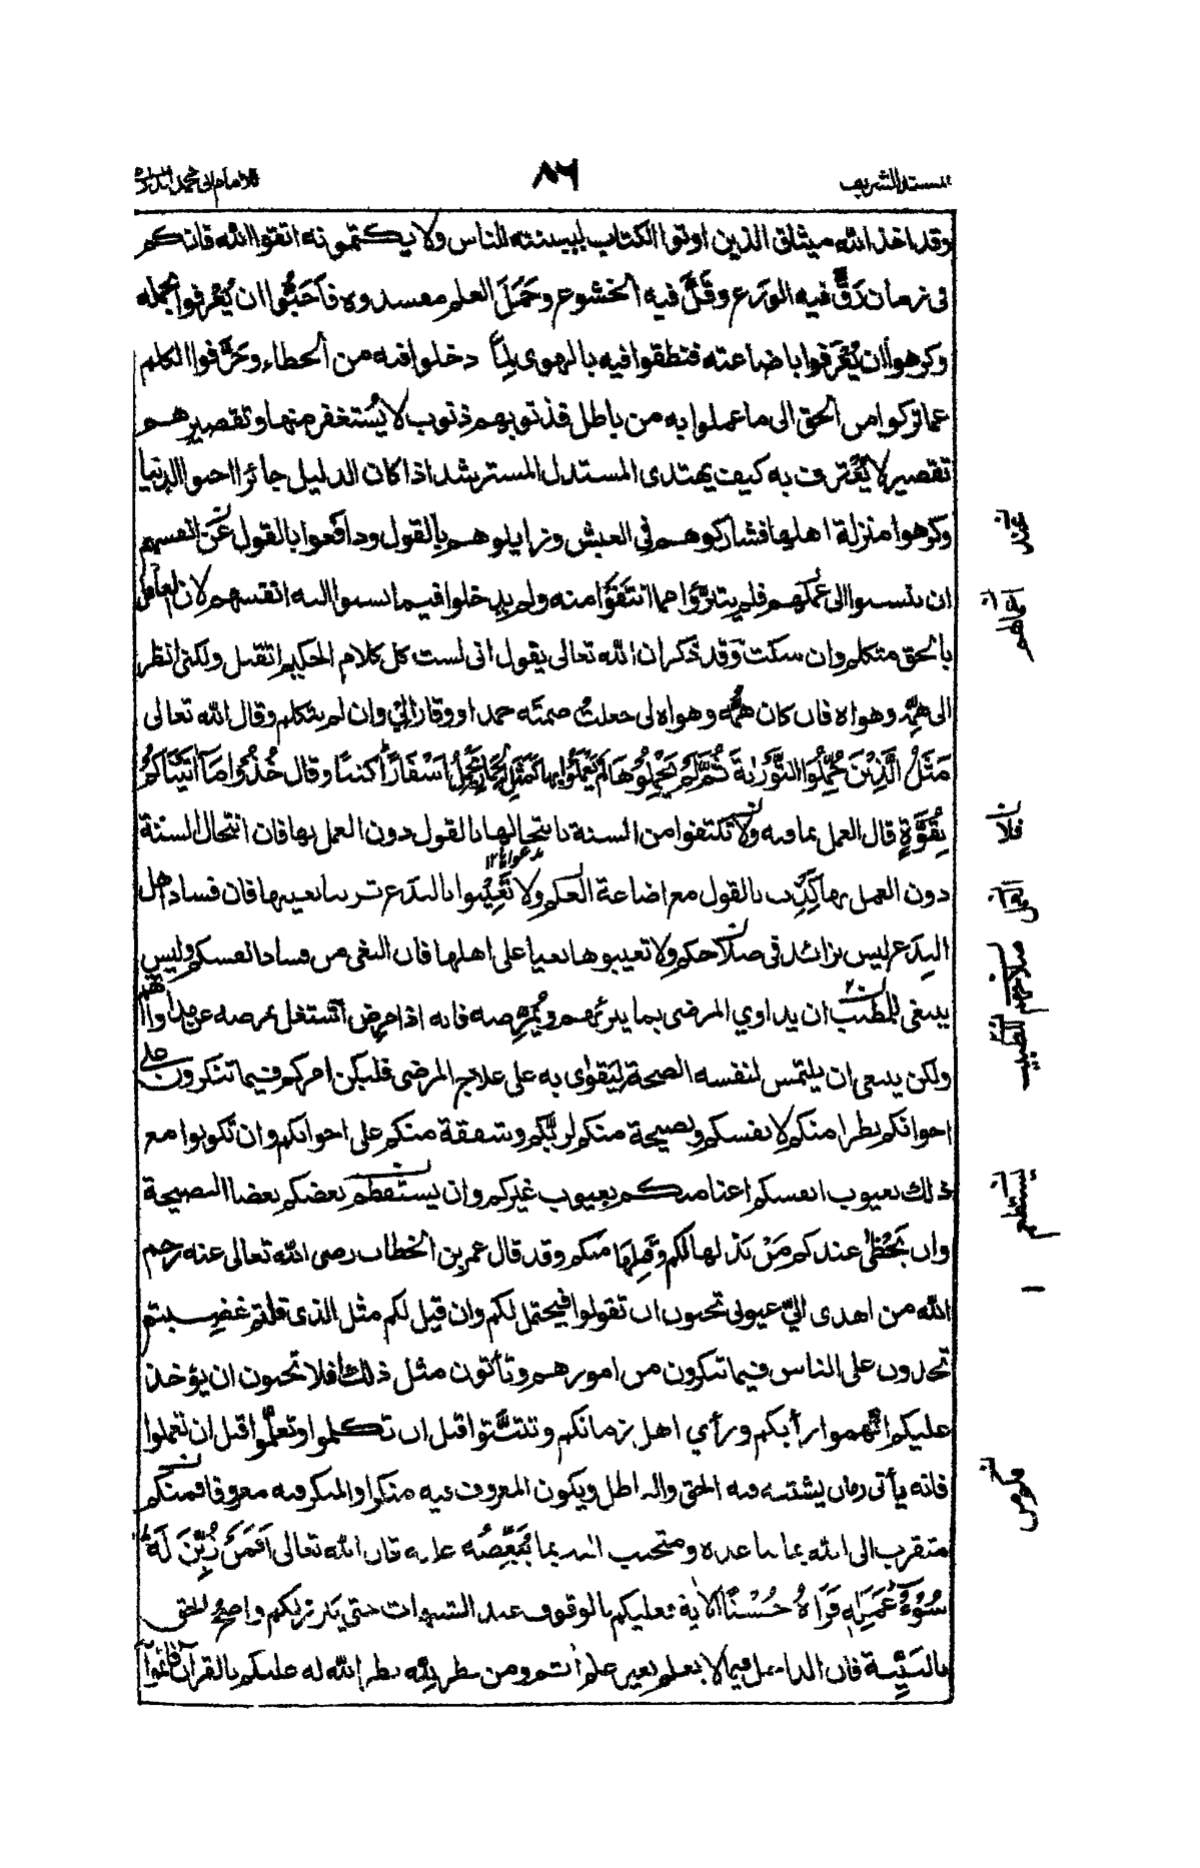 المسند الشريف
٨٦
للامام ابى محمد الدارمى
وقد اخذ الله ميثاق الذين اوتوا الكتاب ليبيننه للناس ولا يكتمونه اتقوا الله فانكم
فى زمان رَقَّ فيه الورع وقَلَّ فيه الخشوع وحَمَلَ العلم مفسدوه فأحبُّوا ان يُعْرفوا بحمله
وكرهوا أن يُعْرَفوا باضاعته فنطقوا فيه بالهوى لما ادخلوا فيه من الخطاء وحرَّفوا الكلم
عما تركوا من الحق الى ما عملوا به من باطل فذنوبهم ذنوب لا يُستغفر منها وتقصيرهم
تقصير لا يُعْترف به كيف يهتدى المستدل المسترشد اذا كان الدليل جائرا احبوا الدنيا
وكرهوا منزلة اهلها فشاركوهم فى العيش وزايلوهم بالقول ودافعوا بالقول عن انفسهم
ان ينسبوا الى عملهم فلم يتبرَّؤا مما انتفَوا منه ولم يدخلوا فيما نسبوا اليه انفسهم لان العامل
بالحق متكلم وان سكت وَقد ذكر ان الله تعالى يقول انى لست كل كلام الحكيم اتقبل ولكنى انظر
الى همِّه وهواه فان كان همُّه وهواه لى جعلتُ صمته حمدا ووقارا لى وان لم يتكلم وقال الله تعالى
مَثَلُ الَّذِيْنَ حُمِّلُوا التَّوْرٰىةَ ثُمَّ لَمْ يَحْمِلُوْهَا لم يَعْمَلُوا بها كَمَثَلِ الْحِمَارِ يَحْمِلُ اَسْفَارًا كتبًا وقال خُذُوْا مَا اٰتَيْنَاكُمْ
بِقُوَّةٍ قال العمل بما فيه ولا تكتفوا من السنة بانتحالها بالقول دون العمل بها فان انتحال السنة
دون العمل بها كَذِب بالقول مع اضاعة العلم ولا تَعِيْبوا بالبدع تزينا بعيبها فان فساد اهل
البدع ليس بزائد فى صلاحكم ولا تعيبوها بغيا على اهلها فان البغى من فساد انفسكم وليس
ينبغى للمطبب ان يداوي المرضى بما يبرئهم ويُمْرِضه فانه اذا مرِض اشتغل بمرضه عن مداواتهم
ولكن ينبغى ان يلتمس لنفسه الصحة ليَقوٰى به على علاج المرضى فليكن امركم فيما تنكرون على
اخوانكم نظرا منكم لانفسكم ونصيحة منكم لربّكم وشفقة منكم على اخوانكم وان تكونوا مع
ذلك بعيوب انفسكم اعنا منكم بعيوب غيركم وان يستفطم بعضكم بعضا النصيحة
وان يَحْظٰى عندكم مَنْ بذلها لكم وَقَبِلَها منكم وقد قال عمر بن الخطاب رضى الله تعالى عنه رحم
الله من اهدى اليّ عيوبى تحبون ان تقولوا فيحتمل لكم وان قيل لكم مثل الذى قلتم غضبتم
تجدون على الناس فيما تنكرون من امورهم وتأتون مثل ذلك افلا تحبون ان يؤخذ
عليكم اتَّهموا رأيكم ورأي اهل زمانكم وتثبَّتوا قبل ان تكلموا وتعلَّموا قبل ان تعملوا
فانه يأتى زمان يشتبه فيه الحق والباطل ويكون المعروف فيه منكرا والمنكر فيه معروفا فمنكم
متقرب الى الله بما يباعده ومتحبب اليه بما يُبَغِّضُه عليه قال الله تعالى اَفَمَنْ زُيِّنَ لَهٗ
سُوْٓءُ عَمَلِهٖ فَرَاٰهُ حُسْنًا الاٰية فعليكم بالوقوف عند الشبهات حتى يبرز لكم واضح الحق
بالبَيِّنة فان الداخل فيما لا يعلم بغير علم اٰثم ومن نظر لله نظر الله له عليكم بالقرآن فأتموا
علا
فلا
صلاحهم
الطبيب